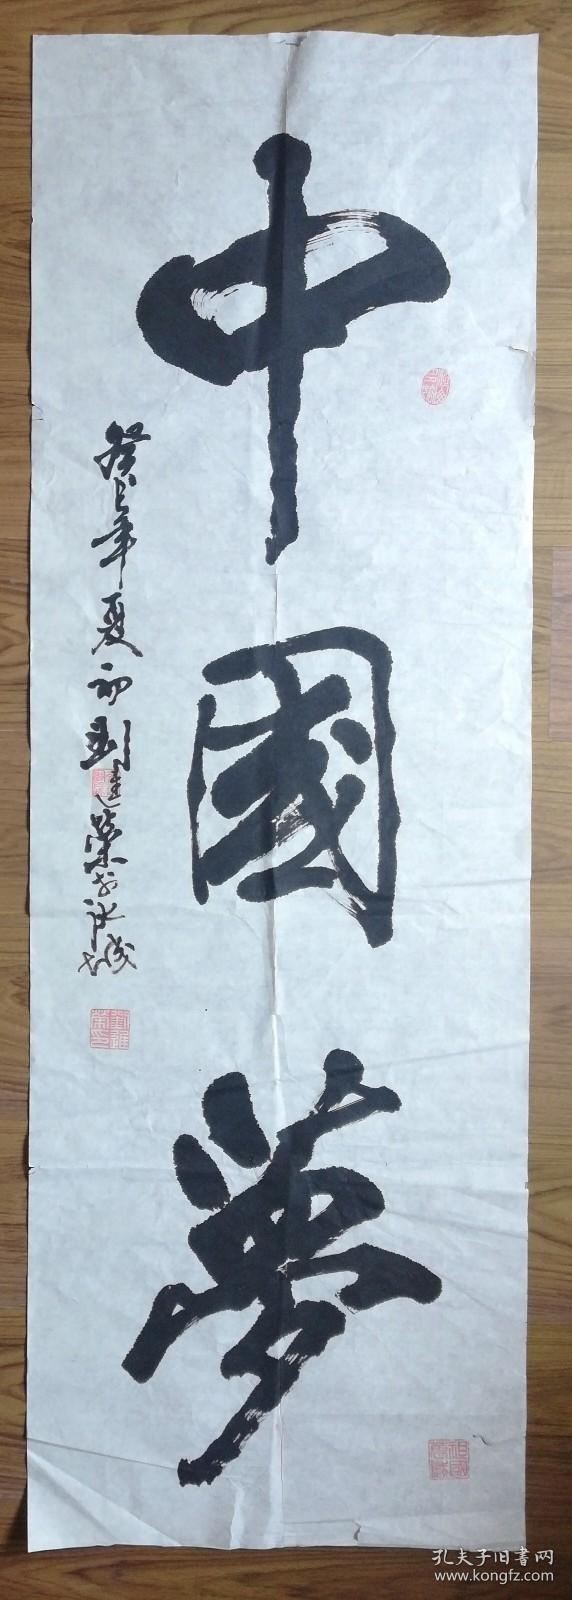 中國夢
癸巳年夏初劉進榮於泳城
孔夫子旧書网
www.kongfz.com